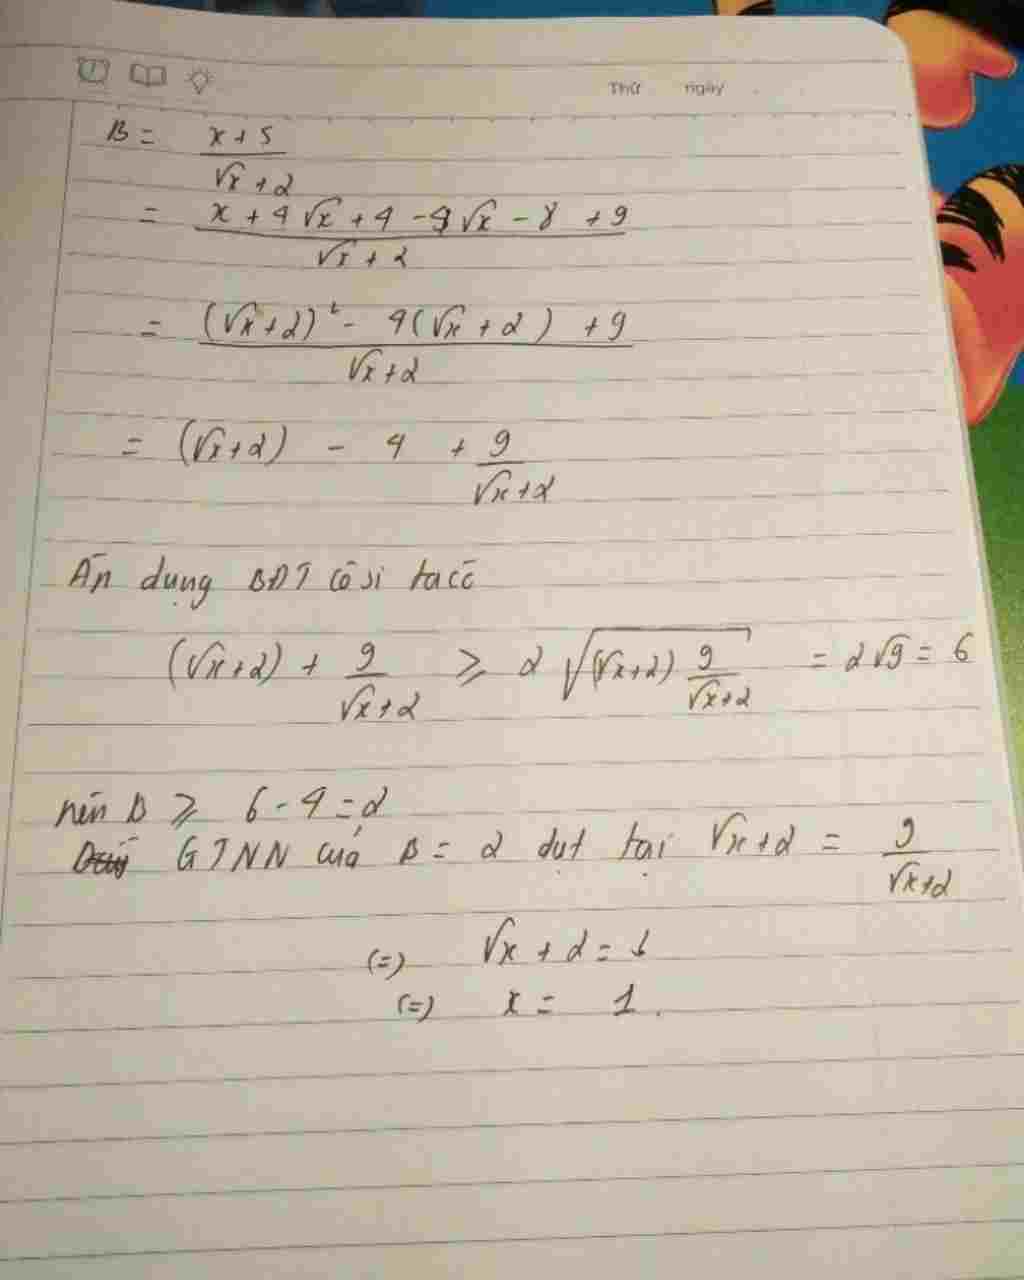 Thứ ngày
B = \frac{x+5}{\sqrt{x}+2}
= \frac{x+4\sqrt{x}+4-4\sqrt{x}-8+9}{\sqrt{x}+2}
= \frac{(\sqrt{x}+2)^2-4(\sqrt{x}+2)+9}{\sqrt{x}+2}
= (\sqrt{x}+2) - 4 + \frac{9}{\sqrt{x}+2}
Áp dụng BĐT Côsi ta có
(\sqrt{x}+2) + \frac{9}{\sqrt{x}+2} ≥ 2\sqrt{(\sqrt{x}+2)\frac{9}{\sqrt{x}+2}} = 2\sqrt{9} = 6
nên B ≥ 6-4=2
GTNN của B = 2 đạt tại \sqrt{x}+2 = \frac{9}{\sqrt{x}+2}
(=) \sqrt{x}+2 =
(=) x = 1.